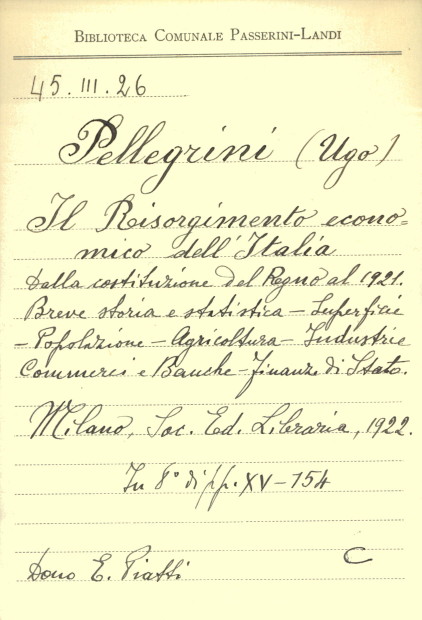 BIBLIOTECA COMUNALE PASSERINI-LANDI
45. III. 26
Pellegrini (Ugo)
Il Risorgimento econo=
mico dell'Italia
Dalla costituzione del Regno al 1921.
Breve storia e statistica - Superficie
- Popolazione - Agricoltura - Industrie
Commerci e Banche - Finanze di Stato.
Milano, Soc. Ed. Libraria, 1922.
In 8° di pp. XV-154
Dono E. Piatti
C